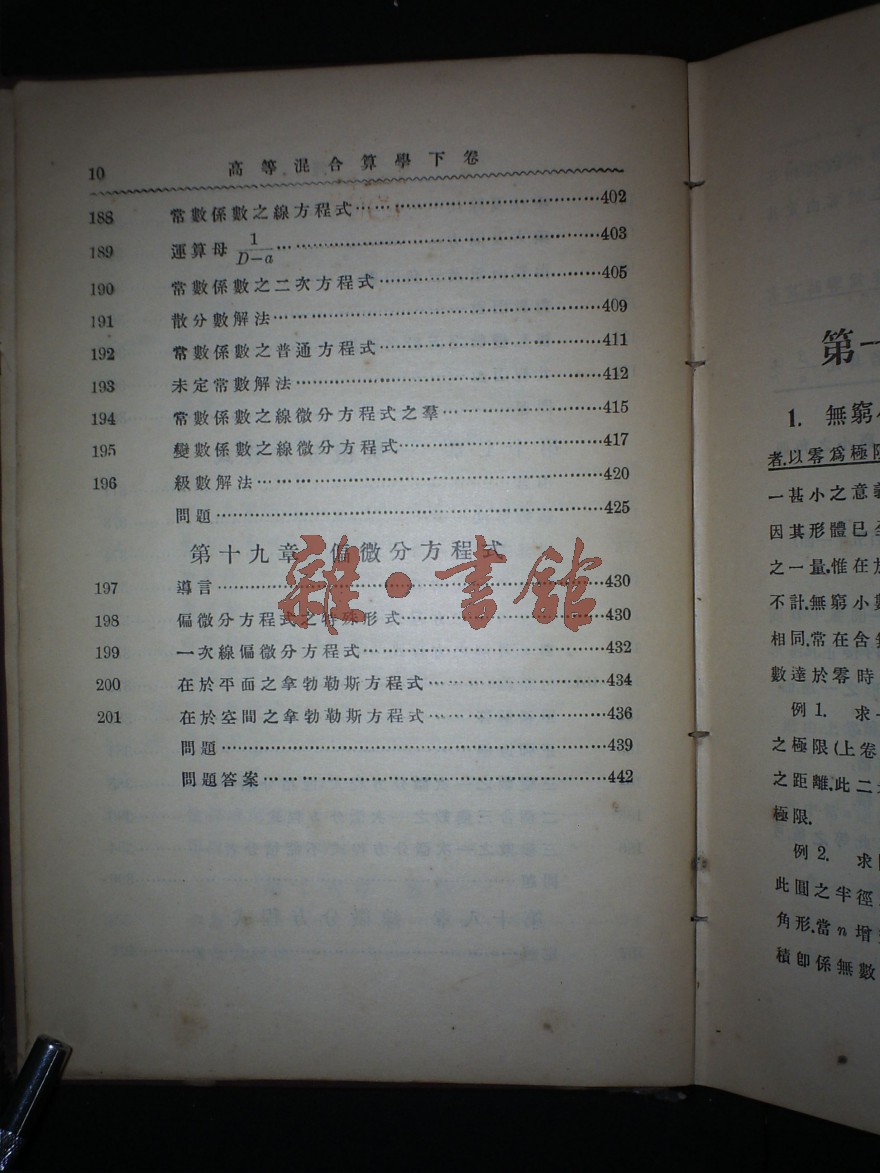 10 高等混合算學下卷
188 常數係數之線方程式………………………402
189 運算母 1/(D−a)………………………403
190 常數係數之二次方程式………………………405
191 散分數解法………………………409
192 常數係數之普通方程式………………………411
193 未定常數解法………………………412
194 常數係數之線微分方程式之羣………………………415
195 變數係數之線微分方程式………………………417
196 級數解法………………………420
問題………………………425
第十九章 偏微分方程式
197 導言………………………430
198 偏微分方程式之特殊形式………………………430
199 一次線偏微分方程式………………………432
200 在於平面之拿勃勒斯方程式………………………434
201 在於空間之拿勃勒斯方程式………………………436
問題………………………439
問題答案………………………442
雜·書館
第一
1. 無窮小
者.以零爲極限
一甚小之意義
因其形體已
之一量,惟在於
不計.無窮小數
相同.常在含
數達於零時
例 1. 求
之極限(上卷
之距離.此二
極限.
例 2. 求
此圓之半徑
角形.當n增
積卽係無數